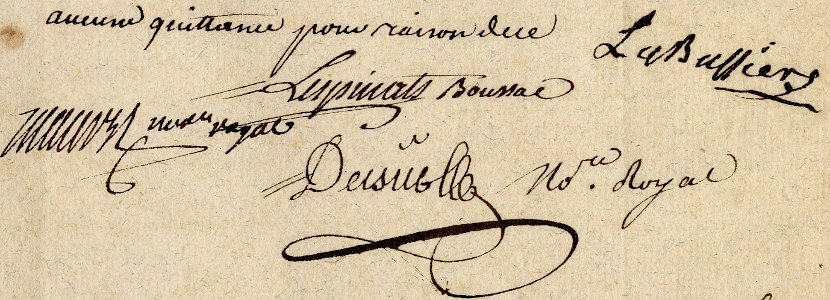 aucune quittance pour raison de ce
La Bussiere
Lespinats Boussac
notre royal
No.re Royal